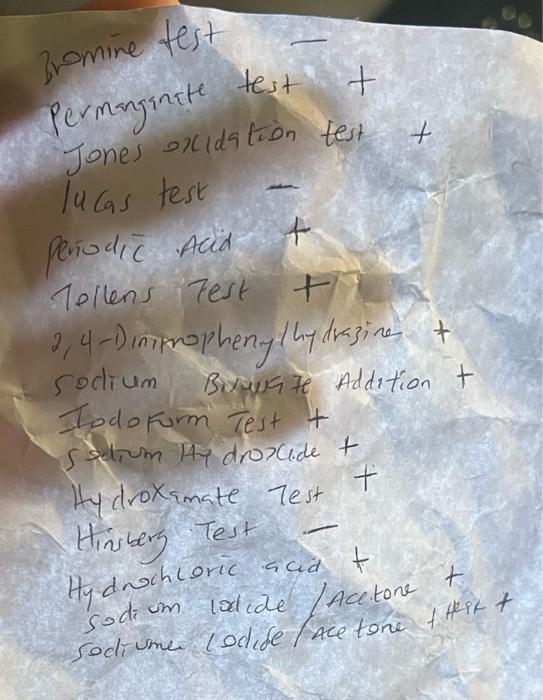 Bromine test -
Permanganate test +
Jones oxidation test +
lucas test -
Periodic Acid +
Tollens Test +
2,4-Dinitrophenylhydrazine +
sodium Bisulfite Addition +
Iodoform Test +
sodium Hydroxide +
Hydroxamate Test +
Hinsberg Test -
Hydrochloric acid +
sodium Iodide / Acetone +
sodiume Iodide / Acetone + Heat +